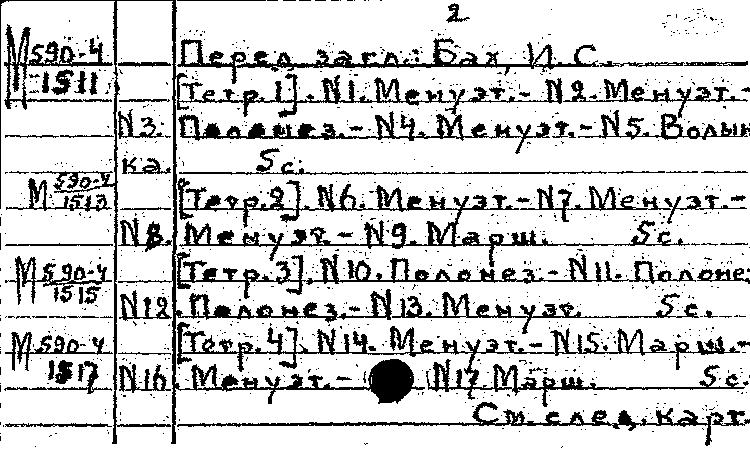 2
М 590-4/1511 Перед загл.: Бах, И. С.
[Тетр. 1]. N1. Менуэт.- N2. Менуэт.-
N3. Полонез.- N4. Менуэт.- N5. Волын
ка. 5 с.
М 590-4/1513 [Тетр. 2]. N6. Менуэт.- N7. Менуэт.-
N8. Менуэт.- N9. Марш. 5 с.
М 590-4/1515 [Тетр. 3]. N10. Полонез.- N11. Полоне
N12. Полонез.- N13. Менуэт. 5 с.
М 590-4/1517 [Тетр. 4]. N14. Менуэт.- N15. Марш.-
N16. Менуэт.- N17 Марш. 5 с.
См. след. карт.